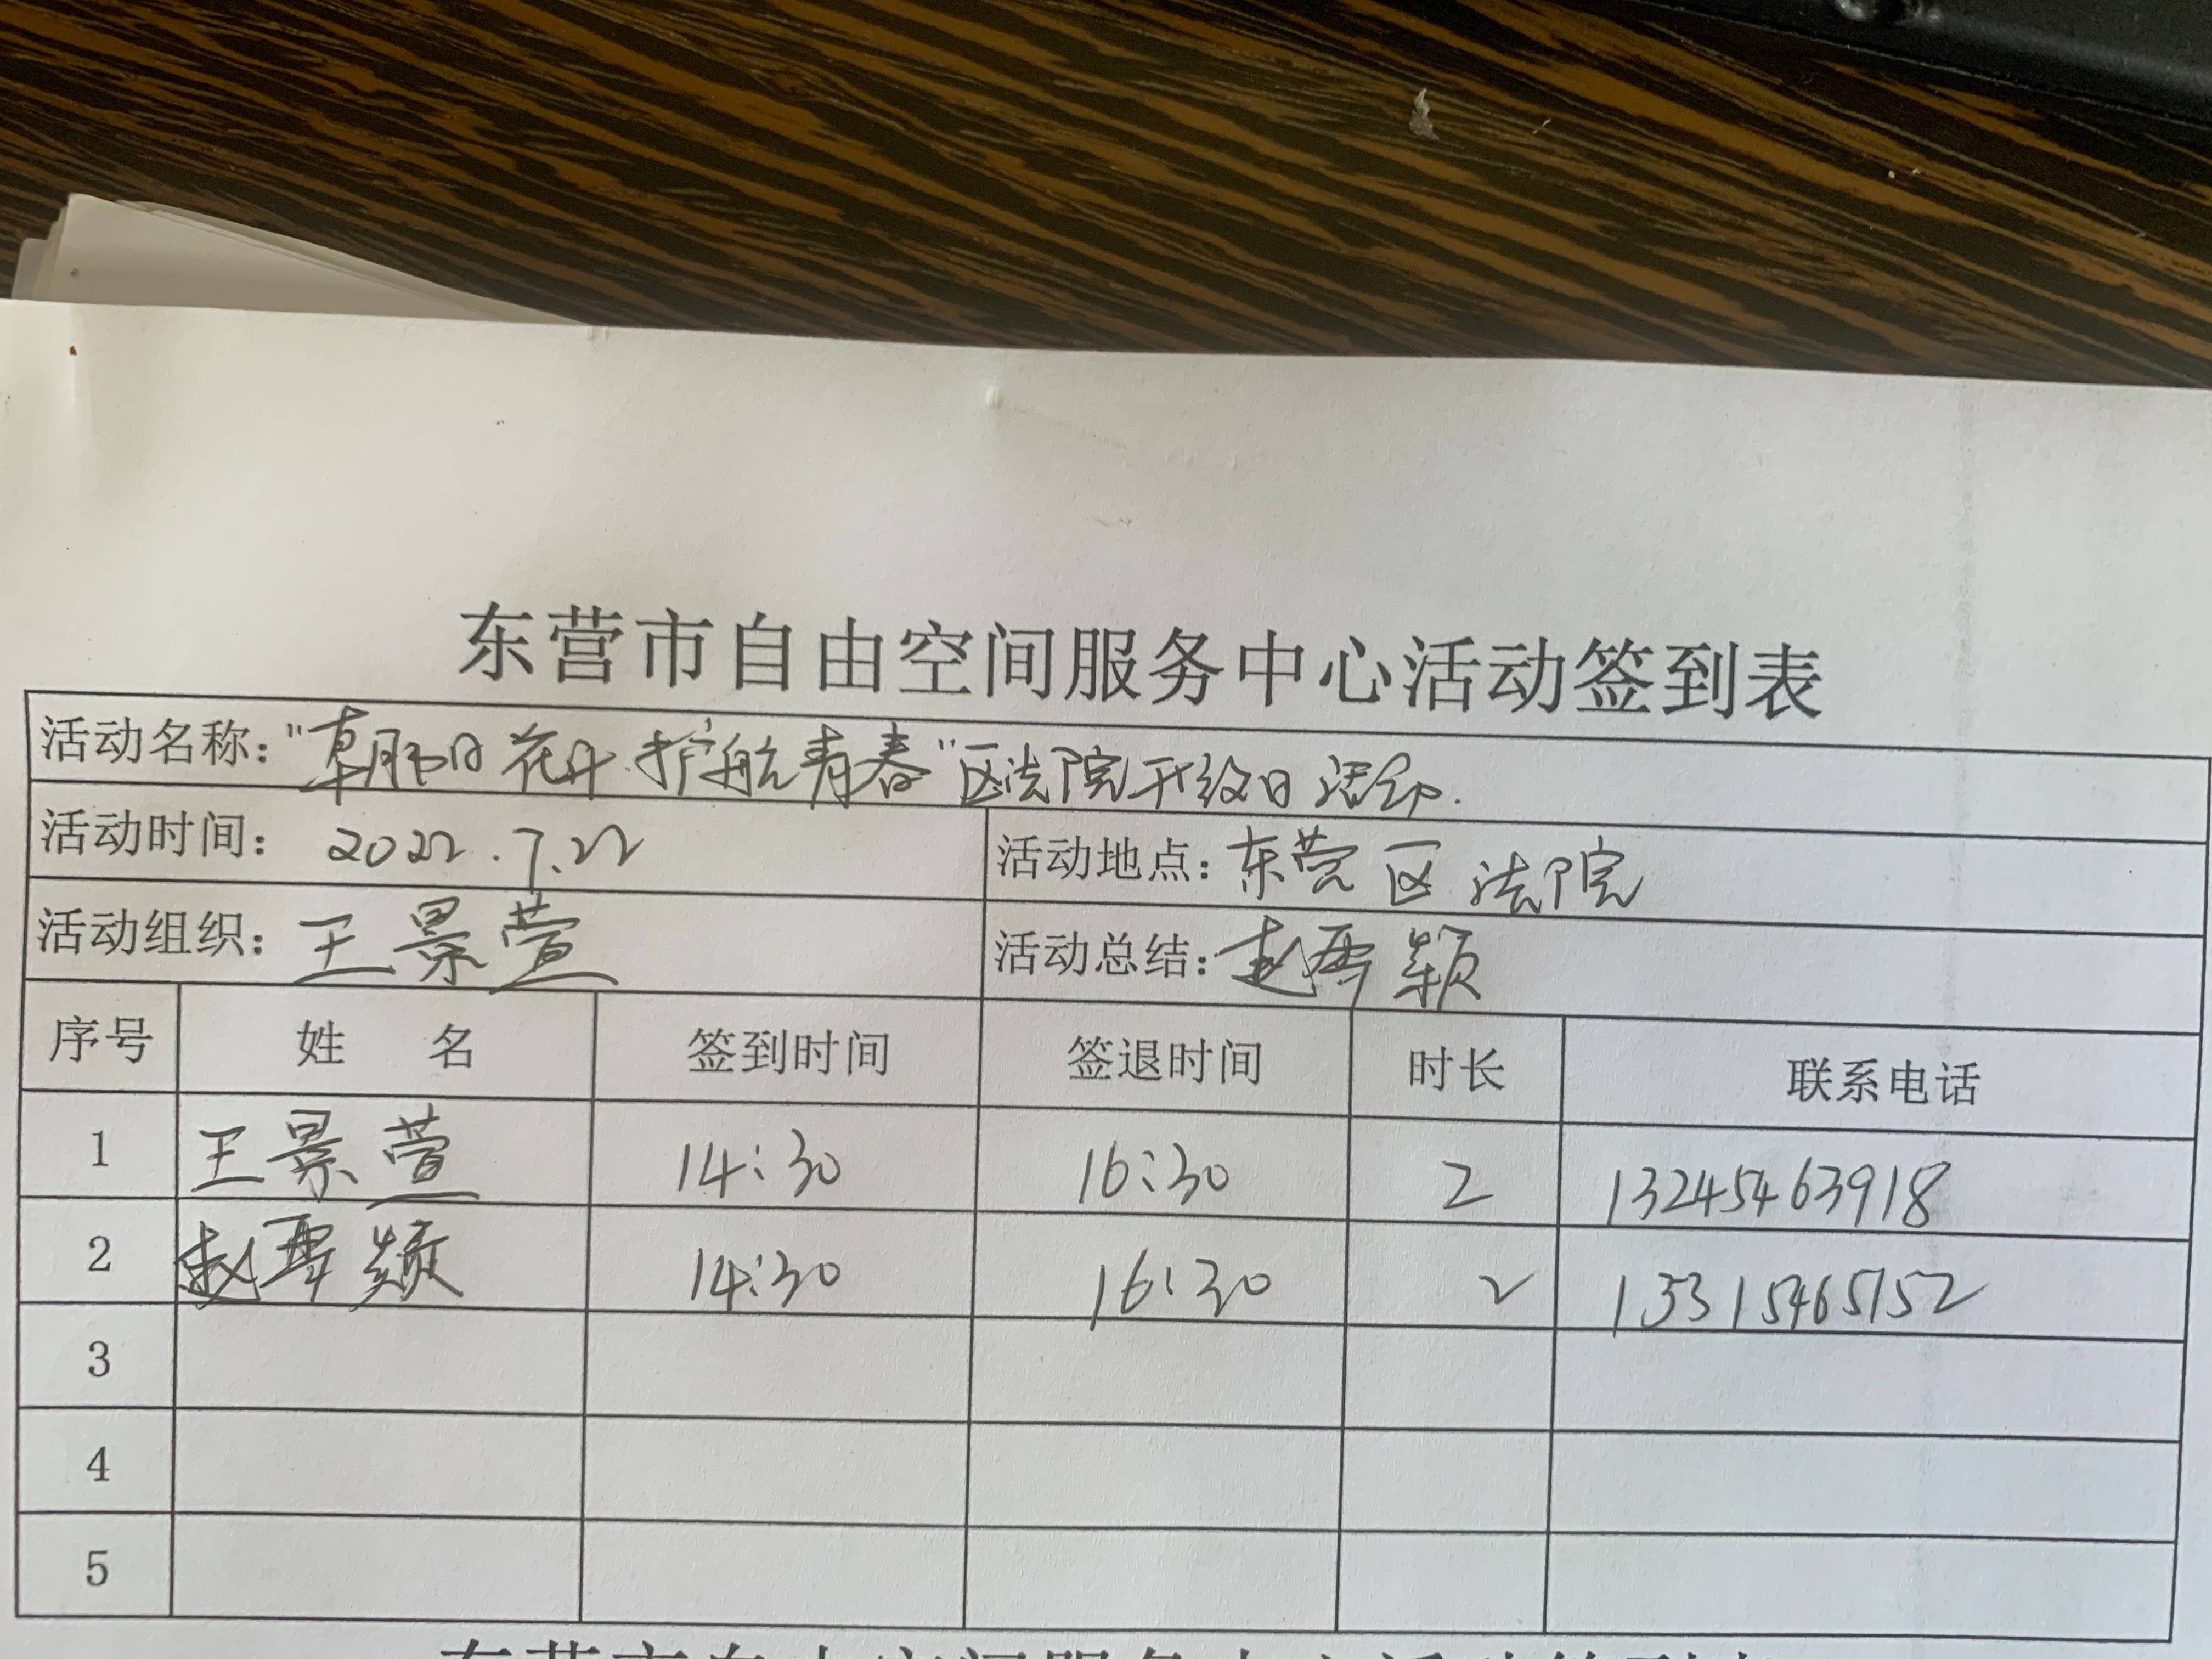 东营市自由空间服务中心活动签到表
活动名称："朝阳花开.护航青春"区法院开放日活动.
活动时间：2022.7.22 活动地点：东营区法院
活动组织：王景萱 活动总结：赵雪颖
序号 姓 名 签到时间 签退时间 时长 联系电话
1 王景萱 14:30 16:30 2 13245463918
2 赵雪颖 14:30 16:30 2 13315465152
3
4
5
东营市自由空间服务中心活动签到表